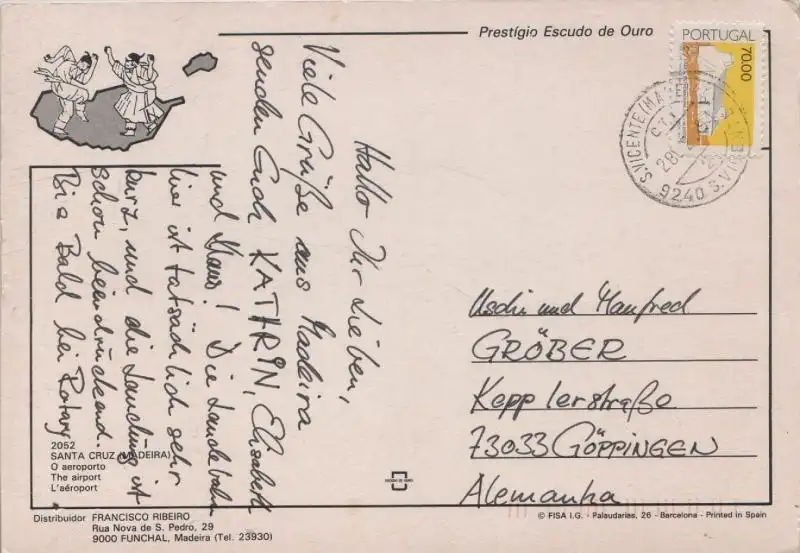 Prestígio Escudo de Ouro
PORTUGAL
70.00
S. VICENTE (MA
9240 S. VI
Hallo Ihr Lieben,
Viele Grüße aus Madeira
senden Euch KATHRIN, Elisabeth
und Klaus! Die Landebahn
hier ist tatsächlich sehr
kurz, und die Landung ist
schon beeindruckend.
Bis Bald bei Rotary
Uschi und Manfred
GRÖBER
Kepplerstraße
73033 GÖPPINGEN
Alemanha
2052
SANTA CRUZ (MADEIRA)
O aeroporto
The airport
L'aéroport
ESCUDO DE ORO
Distribuidor FRANCISCO RIBEIRO
Rua Nova de S. Pedro, 29
9000 FUNCHAL, Madeira (Tel. 23930)
© FISA I.G. - Palaudarias, 26 - Barcelona - Printed in Spain